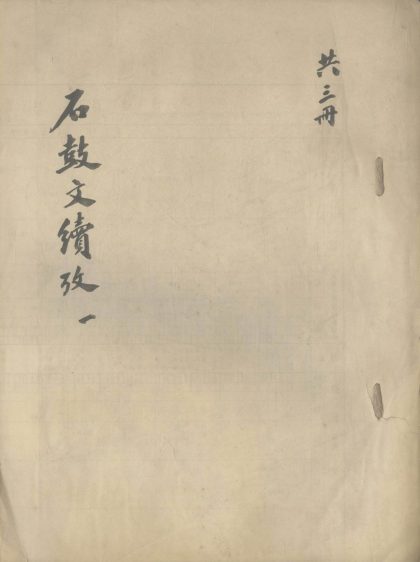 共三冊
石鼓文續攷 一